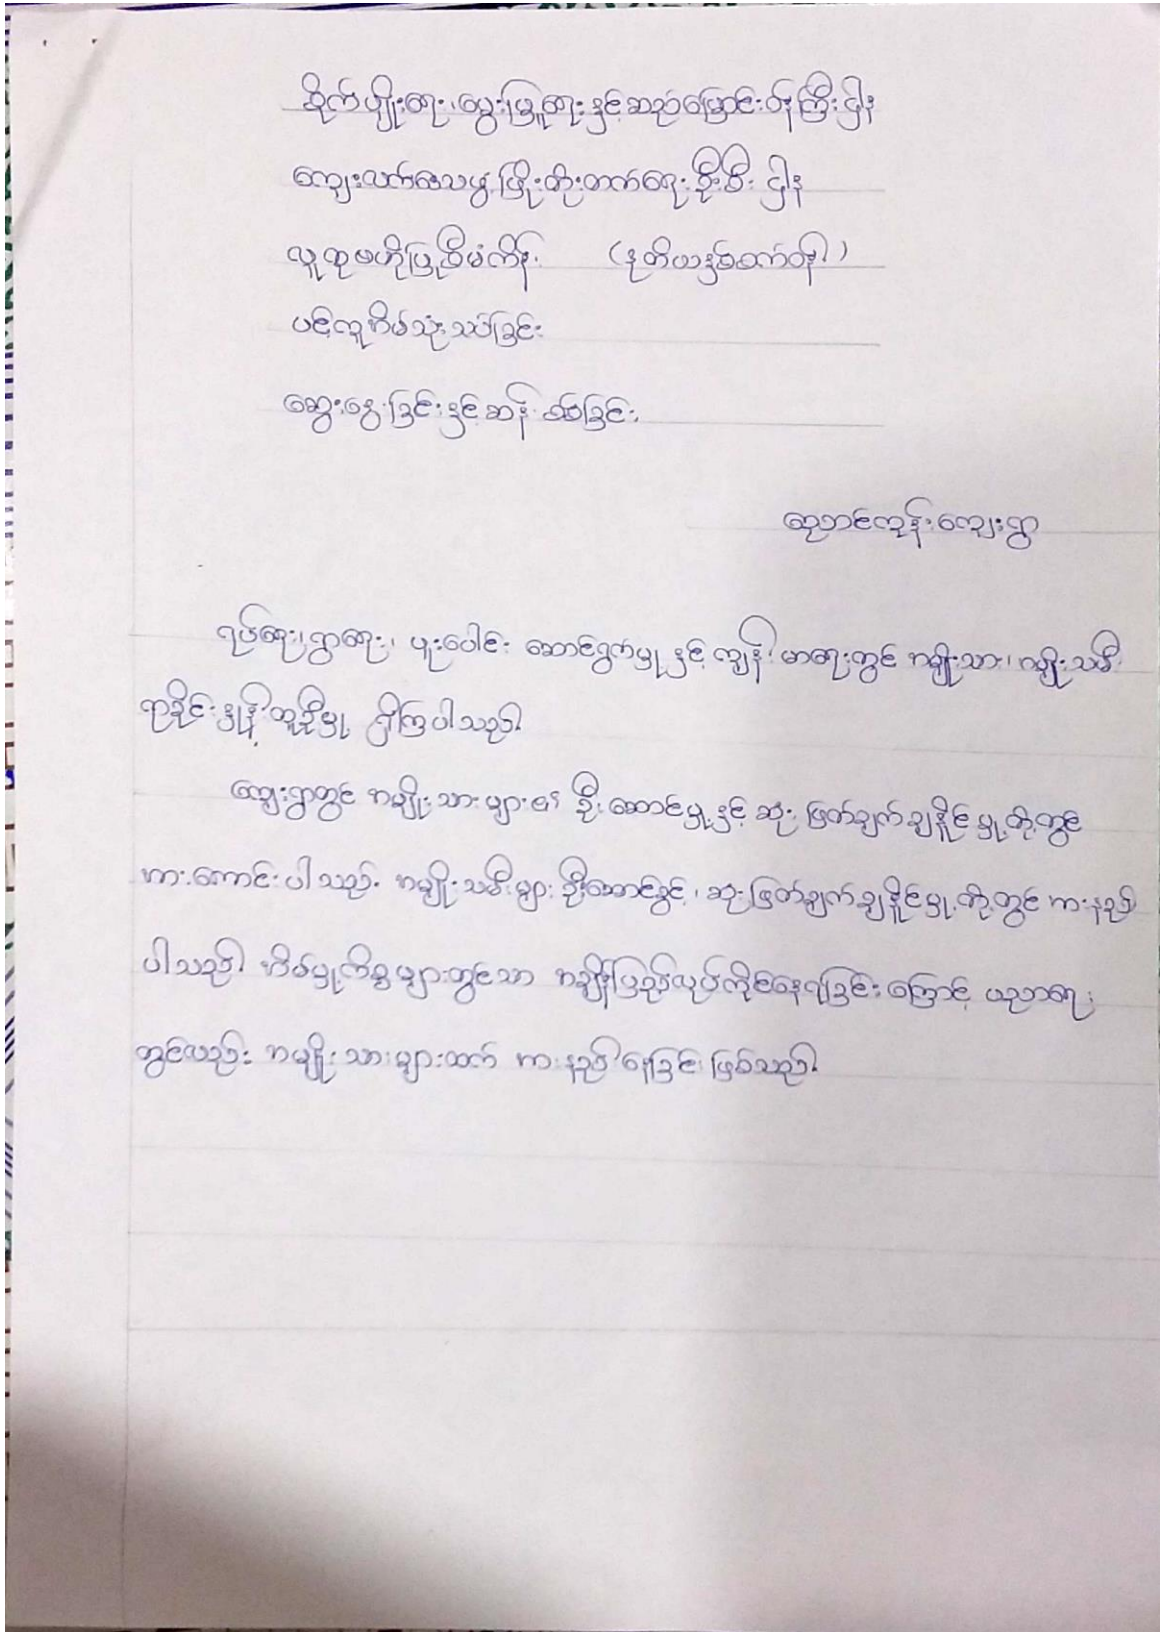 စိုက်ပျိုးရေး၊ မွေးမြူရေးနှင့်ဆည်မြောင်းဝန်ကြီးဌာန
ကျေးလက်ဒေသဖွံ့ဖြိုးတိုးတက်ရေးဦးစီးဌာန
လူထုဗဟိုပြုစီမံကိန်း (ဒုတိယနှစ်စက်ဝန်း)
ပင့်ကူအိမ်သုံးသပ်ခြင်း
ဆွေးနွေးခြင်းနှင့်ဆန်းစစ်ခြင်း
ရပ်ရေး၊ ရွာရေး၊ ပူးပေါင်း ဆောင်ရွက်မှုနှင့် ကျန်းမာရေးတွင် အမျိုးသား၊ အမျိုးသမီး
ရာခိုင်းနှုန်းတူညီမှု ရှိကြပါသည်။
ကျေးရွာတွင် အမျိုးသားများ၏ ဦးဆောင်မှုနှင့် ဆုံးဖြတ်ချက်ချနိုင်မှုတို့တွင်
အားကောင်းပါသည်။ အမျိုးသမီးများ ဦးဆောင်ခွင့်၊ ဆုံးဖြတ်ချက်ချနိုင်မှုတို့တွင် အားနည်း
ပါသည်။ အိမ်မှုကိစ္စများတွင်သာ အချိန်ပြည့်လုပ်ကိုင်နေရခြင်းကြောင့် ပညာရေး
တွင်လည်း အမျိုးသားများထက် အားနည်းနေခြင်းဖြစ်သည်။